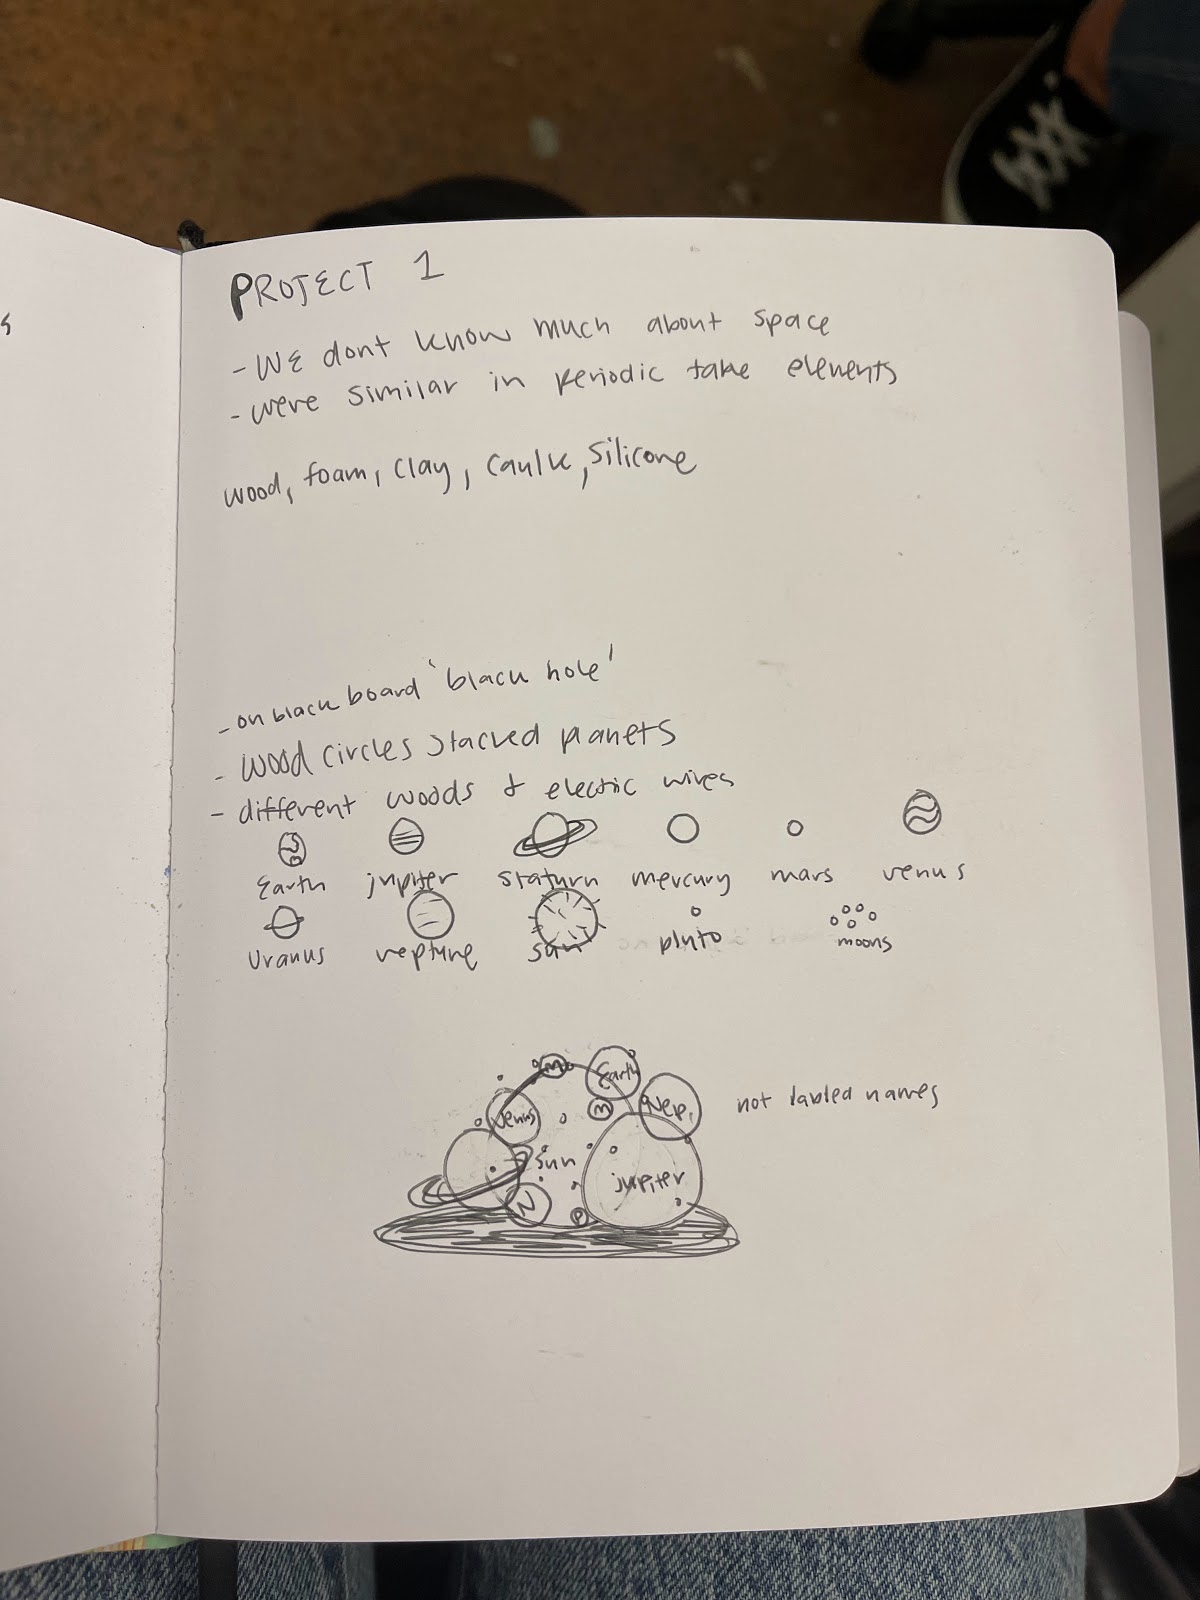 s
PROJECT 1
- WE dont know much about space
- were similar in periodic take elements
wood, foam, clay, caulk, silicone
- on black board 'black hole'
- wood circles stacked planets
- different woods & electric wires
Earth jupiter staturn mercury mars venus
Uranus neptune sun pluto moons
m Earth
Venus m Nep. not labled names
Sun jupiter
N P